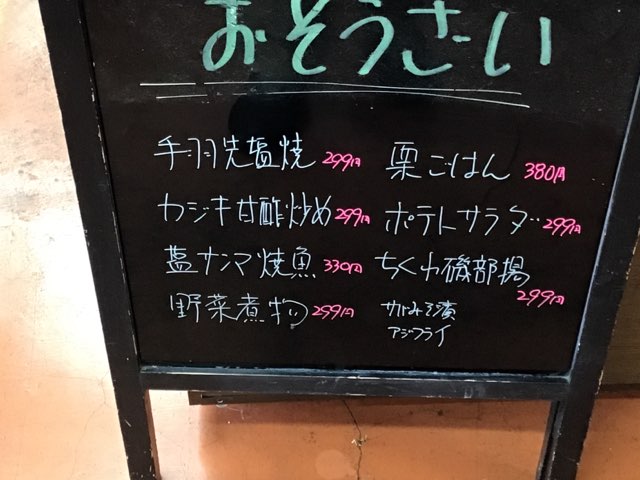 おそうさい
手羽先塩焼 299円
カジキ甘酢炒め 299円
塩サンマ焼魚 330円
野菜煮物 299円
栗ごはん 380円
ポテトサラダ 299円
ちくわ磯部揚
299円
サバみそ漬
アジフライ